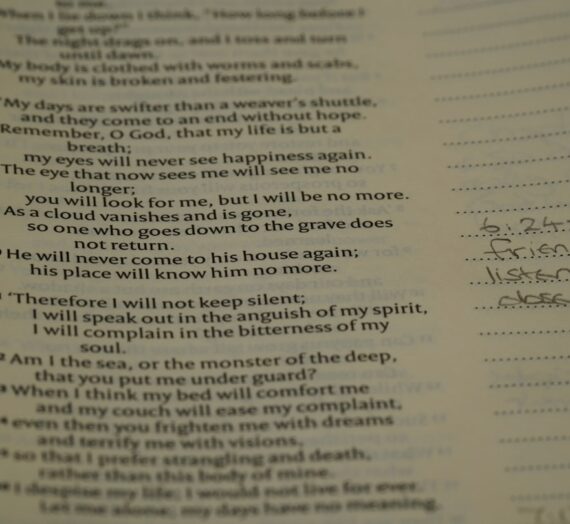 to me.
When I lie down I think, "How long before I
get up?"
The night drags on, and I toss and turn
until dawn.
My body is clothed with worms and scabs,
my skin is broken and festering.
'My days are swifter than a weaver's shuttle,
and they come to an end without hope.
Remember, O God, that my life is but a
breath;
my eyes will never see happiness again.
The eye that now sees me will see me no
longer;
you will look for me, but I will be no more.
As a cloud vanishes and is gone,
so one who goes down to the grave does
not return.
He will never come to his house again;
his place will know him no more.
'Therefore I will not keep silent;
I will speak out in the anguish of my spirit,
I will complain in the bitterness of my
soul.
Am I the sea, or the monster of the deep,
that you put me under guard?
When I think my bed will comfort me
and my couch will ease my complaint,
even then you frighten me with dreams
and terrify me with visions,
so that I prefer strangling and death,
rather than this body of mine.
I despise my life; I would not live for ever.
Let me alone; my days have no meaning.
6:24